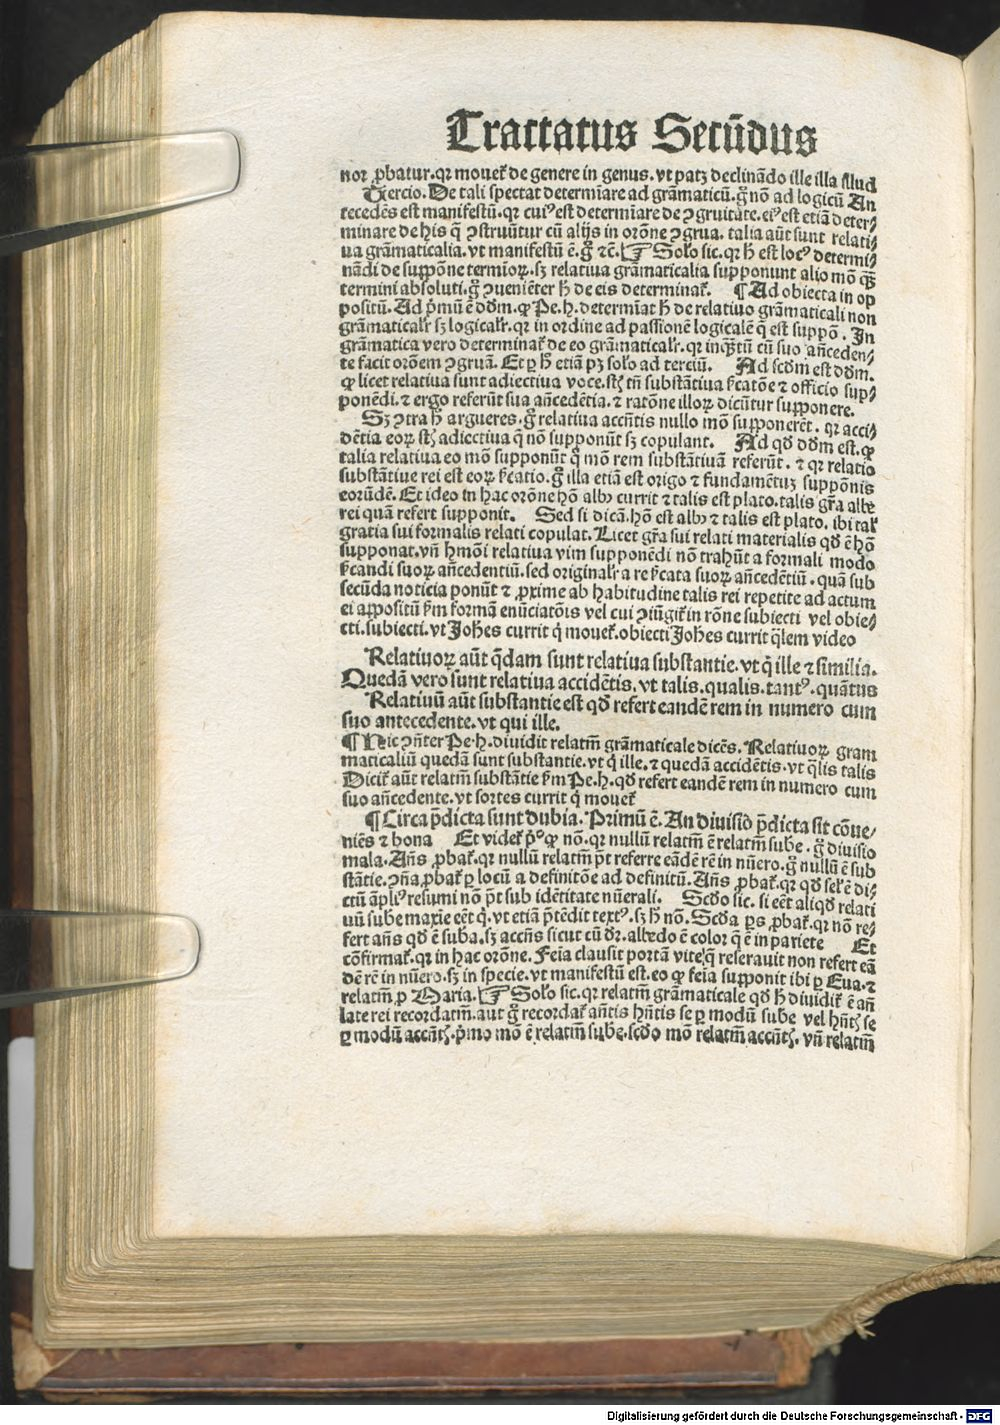 Tractatus Secūdus
nor ꝓbatur. qꝛ mouet᷑ de genere in genus. vt patꝫ declinādo ille illa illud
Tercio. De tali spectat determīare ad grāmaticū. gͦ nō ad logicū An
tecedēs est manifestū. qꝛ cuiꝰ est determīare de ꝯgruitate. eiꝰ est etiā deter⸗
minare de his q̄ ꝯstruūtur cū alijs in orōne ꝯgrua. talia aūt sunt relati⸗
ua grāmaticalia. vt manifestū ē. gͦ ⁊c̄. ☞ Solo sic. qꝛ h̄ est locꝰ determi⸗
nādi de suppōne termioꝝ. sꝫ relatiua grāmaticalia supponunt alio mō q̄ꝫ
termini absoluti. gͦ ꝯueniēter h̄ de eis determinat᷑. ¶ Ad obiecta in op
positū. Ad p̄mū ē dōm. ꝙ Pe. h. determīat h̄ de relatiuo grāmaticali non
grāmaticalr̄ sꝫ logicalr̄. qꝛ in ordine ad passionē logicalē q̄ est suppō. In
grāmatica vero determinat᷑ de eo grāmaticalr̄. qꝛ inq̄ꝫtū cū suo an̄ceden⸗
te facit orōem ꝯgruā. Et ꝑ h̄ etiā pꝫ solo ad terciū. Ad scd̄m est dōm.
ꝙ licet relatiua sunt adiectiua voce. st̄ tn̄ substātiua fīcatōe ⁊ officio sup⸗
ponēdi. ⁊ ergo referūt sua an̄cedētia. ⁊ ratōne illoꝝ dicūtur supponere.
Sꝫ ꝯtra h̄ argueres. gͦ relatiua accn̄tis nullo mō supponerēt. qꝛ acci⸗
dētia eoꝝ st̄ adiectiua q̄ nō supponūt sꝫ copulant. Ad qd̄ dōm est. ꝙ
talia relatiua eo mō supponūt q̄ mō rem substātiuā referūt. ⁊ qꝛ relatio
substātiue rei est eoꝝ fīcatio. gͦ illa etiā est origo ⁊ fundamētuꝫ suppōnis
eorūdē. Et ideo in hac orōne hō albꝰ currit ⁊ talis est plato. talis gr̄a albe
rei quā refert supponit. Sed si dicā. hō est albꝰ ⁊ talis est plato. ibi tal᷑
gratia sui formalis relati copulat. Licet gr̄a sui relati materialis qd̄ ē hō
supponat. vn̄ hmōi relatiua vim supponēdi nō trahūt a formali modo
fīcandi suoꝝ an̄cedentiū. sed originalr̄ a re fīcata suoꝝ an̄cedētiū. quā sub
secūda noticia ponūt ⁊ ꝓxime ab habitudine talis rei repetite ad actum
ei appositū fm̄ formā enūciatōis vel cui ꝯiūgit᷑ in rōne subiecti vel obie⸗
cti. subiecti. vt Joh̄es currit q̄ mouet᷑. obiecti Joh̄es currit q̄lem video
Relatiuoꝝ aūt q̄dam sunt relatiua substantie. vt q̄ ille ⁊ similia.
Quedā vero sunt relatiua accidētis. vt talis. qualis. tantꝰ. quātus
Relatiuū aūt substantie est qd̄ refert eandē rem in numero cum
suo antecedente. vt qui ille.
¶ Hic ꝯn̄ter Pe. h. diuidit relatm̄ grāmaticale dicēs. Relatiuoꝝ gram
maticaliū quedā sunt substantie. vt q̄ ille. ⁊ quedā accidētis. vt q̄lis talis
Dicit᷑ aūt relatm̄ substātie fm̄ Pe. h. qd̄ refert eandē rem in numero cum
suo an̄cedente. vt sortes currit q̄ mouet᷑
¶ Circa p̄dicta sunt dubia. Primū ē. An diuisio p̄dicta sit cōue⸗
niēs ⁊ bona Et videt᷑ p̄ͦ ꝙ nō. qꝛ nullū relatm̄ ē relatm̄ sube. gͦ diuisio
mala. An̄s ꝓbat᷑. qꝛ nullū relatm̄ pt̄ referre eādē rē in nūero. gͦ nullū ē sub
stātie. ꝯn̄a ꝓbat᷑ ꝑ locū a definitōe ad definitū. An̄s ꝓbat᷑. qꝛ qd̄ sel᷑ ē di⸗
ctū āpliꝰ resumi nō pt̄ sub idētitate nūerali. Scd̄o sic. si eēt aliqd̄ relati
uū sube maxie eēt q̄. vt etiā p̄tēdit textꝰ. sꝫ h̄ nō. Scd̄a ꝑs ꝓbat᷑. qꝛ nō re⸗
fert an̄s qd̄ ē suba. sꝫ accn̄s sicut cū dr̄. albedo ē color q̄ ē in pariete Et
cōfirmat᷑. qꝛ in hac orōne. Feīa clausit portā vite q̄ reserauit non refert eā
dē rē in nūero. sꝫ in specie. vt manifestū est. eo ꝙ feīa supponit ibi ꝑ Eua. ⁊
relatm̄ ꝓ Maria. ☞ Solo sic. qꝛ relatm̄ grāmaticale qd̄ h̄ diuidit᷑ ē an̄
late rei recordatm̄. aut gͦ recordat᷑ an̄tis hn̄tis se ꝑ modū sube vel hn̄tꝭ se
ꝑ modū accn̄tꝭ. p̄mo mō ē relatm̄ sube. scd̄o mō relatm̄ accn̄tꝭ. vn̄ relatm̄
Digitalisierung gefördert durch die Deutsche Forschungsgemeinschaft - DFG